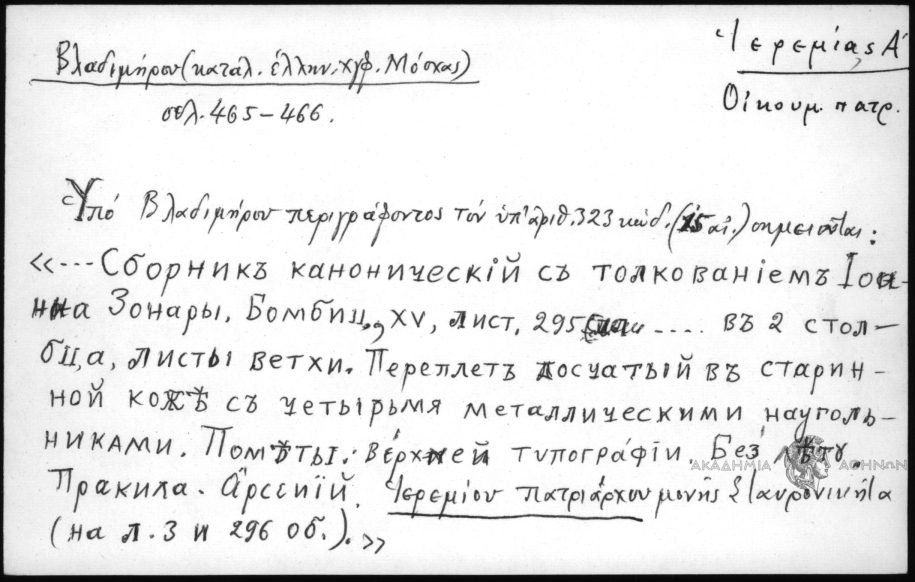 Βλαδιμήρου (καταλ. ἑλλην. χγφ. Μόσχας)
σελ. 465-466.
Ἱερεμίας Α΄
Οἰκουμ. πατρ.
Ὑπό Βλαδιμήρου περιγράφοντος τόν ὑπ' ἀριθ. 323 κώδ. (15 αἰ.) σημειοῦται:
«---Сборникъ каноническій съ толкованіемъ Іоа-
нна Зонары. Бомбиц., XV, лист, 295 .... въ 2 стол-
бца, листы ветхи. Переплетъ досчатый въ старин-
ной кожѣ съ четырьмя металлическими науголь-
никами. Помѣты: верхней типографіи. Без
ΑΚΑΔΗΜΙΑ ΑΘΗΝΩΝ
Пракила. Арсеній. Ἱερεμίου πατριάρχου μονῆς Σταυρονικήτα
(на л. 3 и 296 об.).»